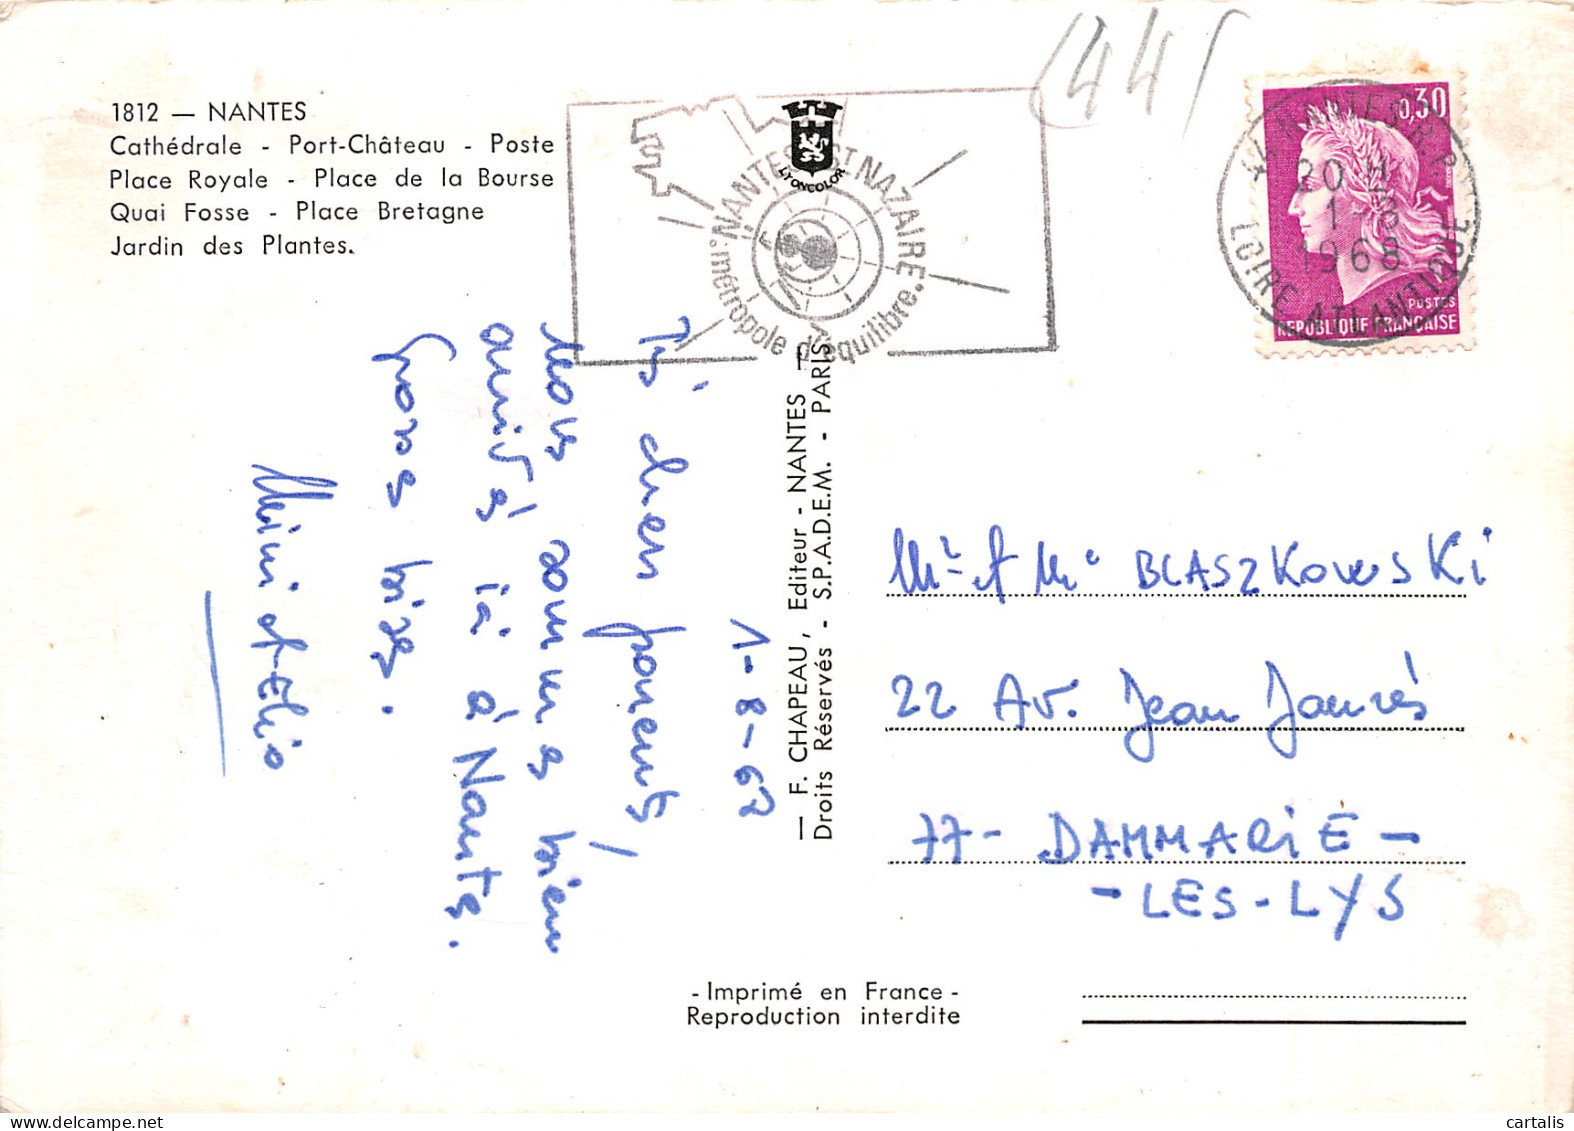 1812 — NANTES
Cathédrale - Port-Château - Poste
Place Royale - Place de la Bourse
Quai Fosse - Place Bretagne
Jardin des Plantes.
(44)
LYONCOLOR
NANTES ST NAZAIRE
métropole d'équilibre.
0,30
POSTES
REPUBLIQUE FRANÇAISE
44 NANTES R.P.
20 H
1-8
1968
LOIRE ATLANTIQUE
1-8-67
Très chers parents,
Nous sommes bien
arrivés ici à Nantes.
Gros bises.
Mimi et Elio
— F. CHAPEAU, Editeur - NANTES —
Droits Réservés - S.P.A.D.E.M. - PARIS
Mr et Me BLASZKOWSKi
22 Av. Jean Jaurès
77- DAMMARiE-
-LES-LYS
- Imprimé en France -
Reproduction interdite
cartalis